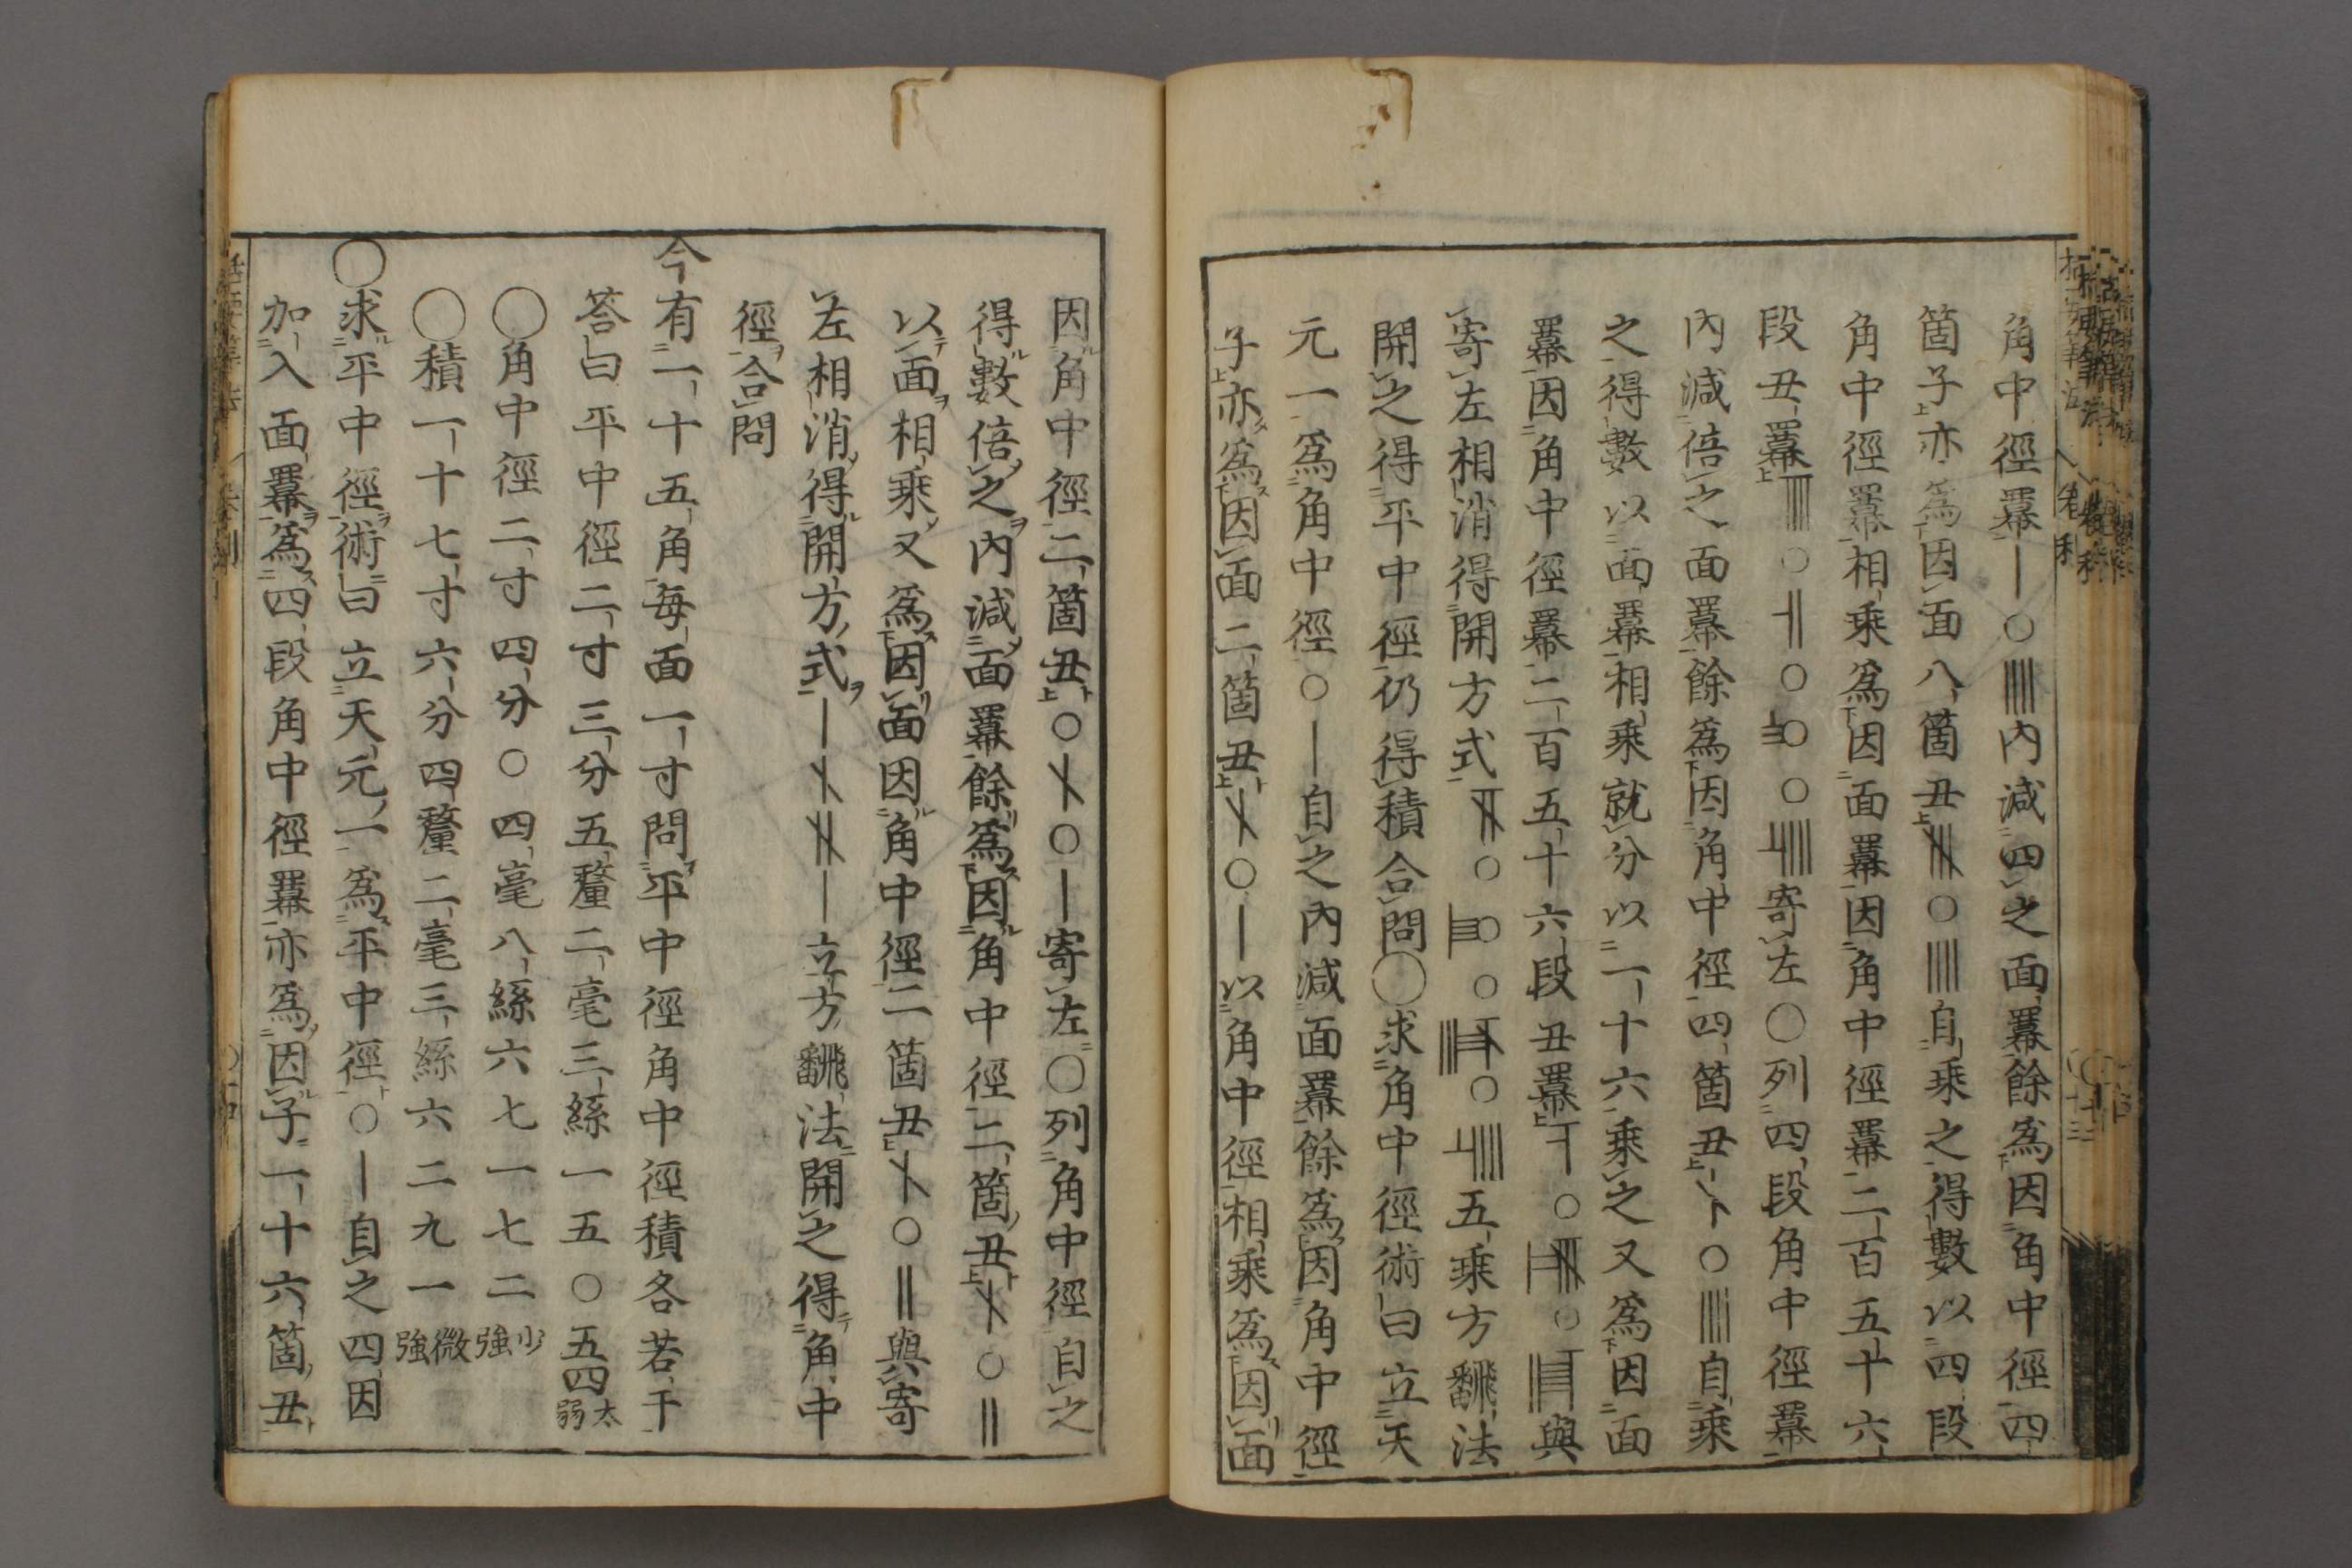 角中徑冪｜〇𝍤內減四之面冪餘爲因角中徑四
箇子亦爲因面八箇丑〇自乘之得數以四段
角中徑冪相乘爲因面冪因角中徑冪二百五十六
段丑冪〇〇〇〇寄左〇列四段角中徑冪
內減倍之面冪餘爲因角中徑四箇丑〇自乘
之得數以面冪相乘就分以一十六乘之又爲因面
冪因角中徑冪二百五十六段丑冪〇〇與
寄左相消得開方式〇〇〇〇五乘方飜法
開之得平中徑仍得積合問〇求角中徑術曰立天
元一爲角中徑〇｜自之內減面冪餘爲因角中徑
子亦爲因面二箇丑〇｜以角中徑相乘爲因面
因角中徑二箇丑〇〇｜寄左〇列角中徑自之
得數倍之內減面冪餘爲因角中徑二箇丑〇‖
以面相乘又爲因面因角中徑二箇丑〇‖與寄
左相消得開方式｜｜立方飜法開之得角中
徑合問
今有一十五角每面一寸問平中徑角中徑積各若干
答曰平中徑二寸三分五釐二毫三絲一五〇五四太弱
〇角中徑二寸四分〇四毫八絲六七一七二少強
〇積一十七寸六分四釐二毫三絲六二九一微強
〇求平中徑術曰立天元一爲平中徑〇｜自之四因
加入面冪爲四段角中徑冪亦爲因子一十六箇丑